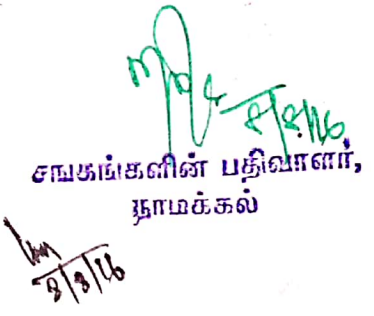 8/8/16
சங்கங்களின் பதிவாளர்,
நாமக்கல்
8/8/16